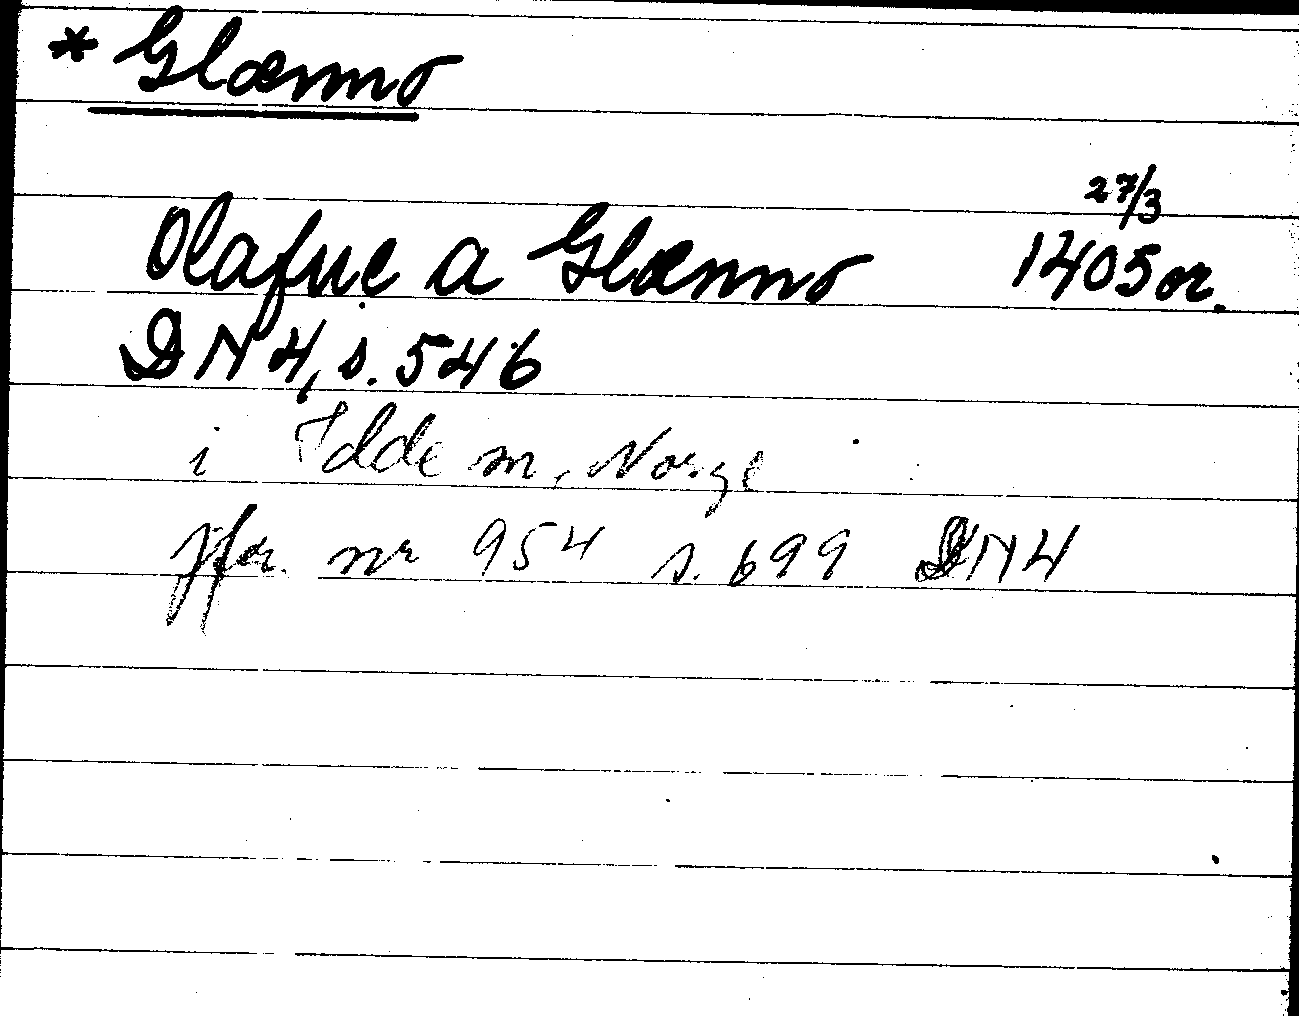 * Glænno
27/3
Olafue a Glænno 1405 or.
DN 4, s. 546
i Idde sn, Norge
jfr. nr 954 s. 699 DN4